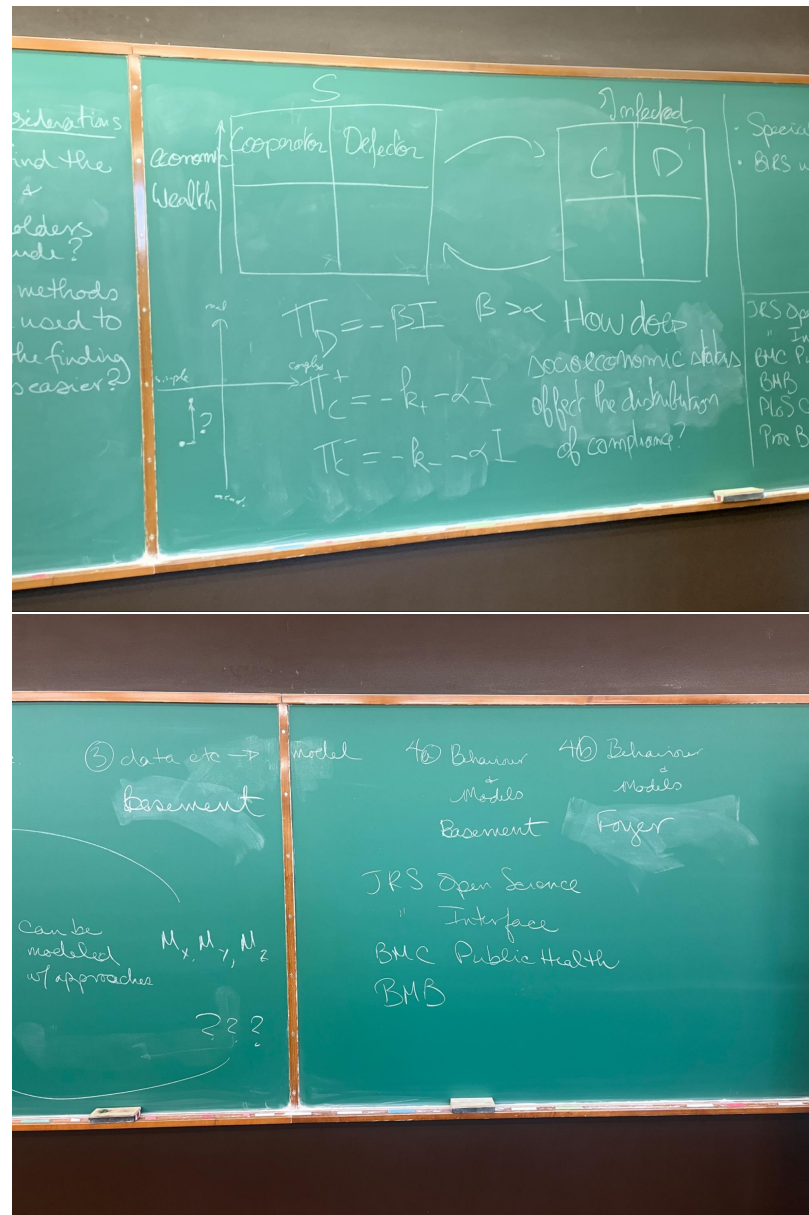 siderations
find the
&
olders
ude?
methods
used to
the finding
easier?
S
economic
Wealth
Cooperator Defector
Infected
C D
real
simple complex
?
Π_D = -βI β > α
Π_C^+ = -k_+ - αI
Π_C^- = -k_- - αI
How does
socioeconomic status
affect the distribution
of compliance?
· Specia
· BIRS w
JRS Ope
" In
BMC Pu
BMB
PLoS C
Proc B
③ data etc → model
Basement
4ⓐ Behaviour
&
Models
Basement
4ⓑ Behaviour
&
Models
Foyer
can be
modeled
w/ approaches
M_x, M_y, M_z
???
JRS Open Science
" Interface
BMC Public Health
BMB